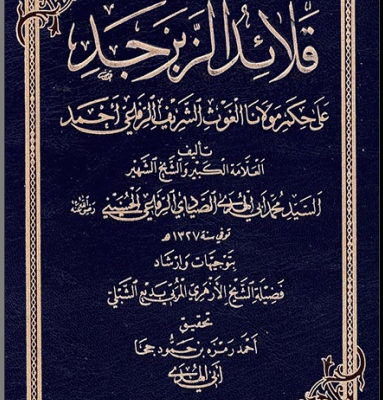 قلائد الزبرجد
على حكم مولانا الغوث الشريف الرفاعي أحمد
تأليف
العلامة الكبير والشيخ الشهير
السيد محمد أبي الهدى الصيادي الرفاعي الحسيني رضي الله عنه
توفي سنة ١٣٢٧ هـ
بتوجيهات وإرشاد
فضيلة الشيخ الأزهري المربي بديع الشبلي
تحقيق
أحمد رمزة بن حمود جحا
أبي الهدى